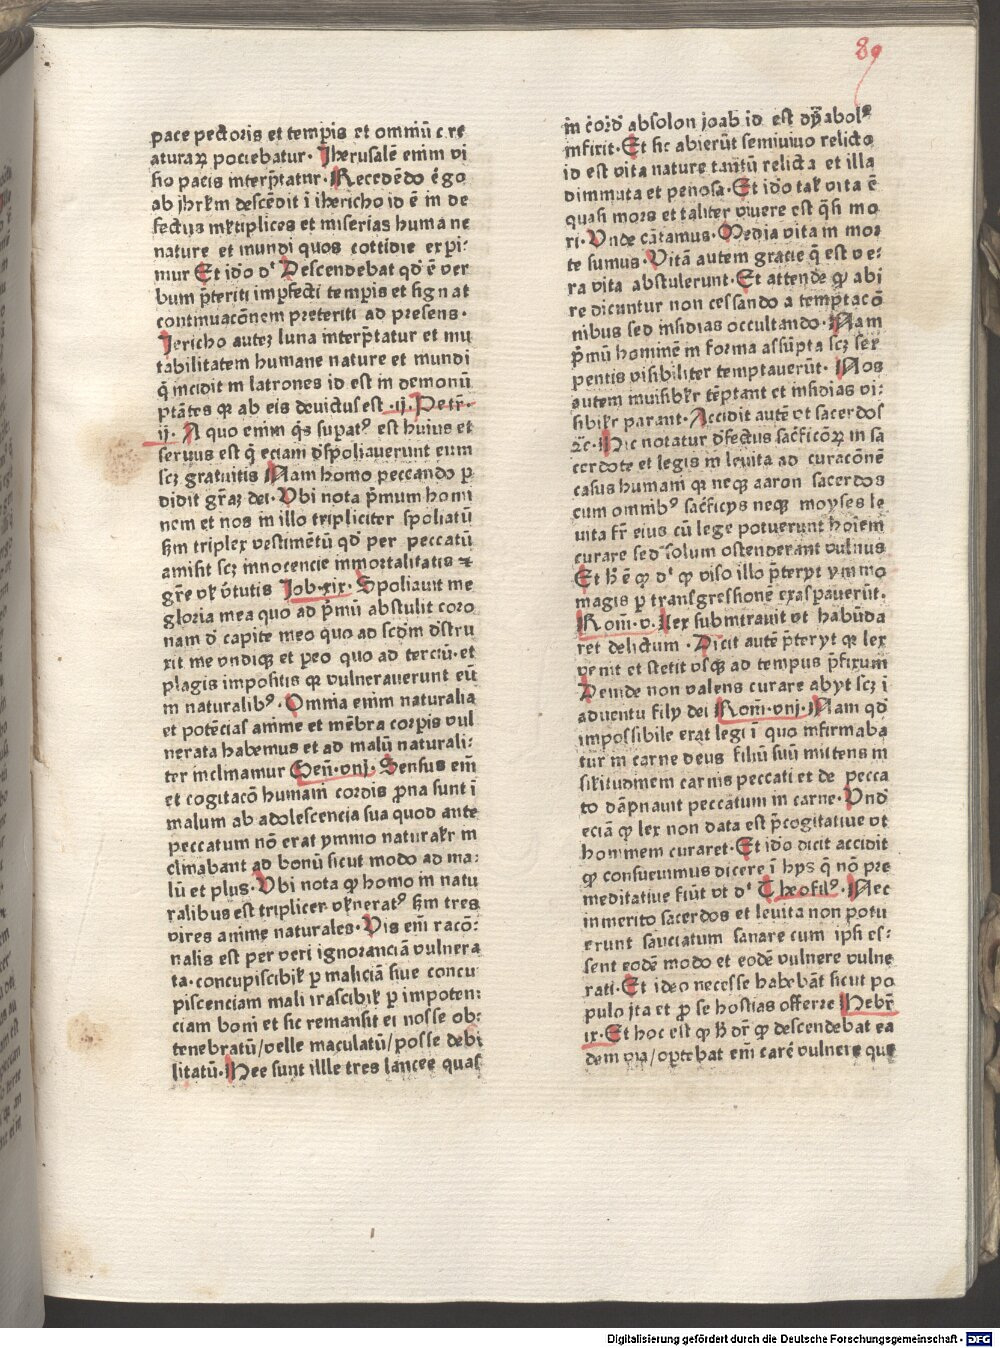 89
pace pectoris et temp̄is et omniū cre
aturaꝝ pociebatur. Jherusalē enim vi
sio pacis interp̄tatur. Recedēdo ḡo
ab jhrłm descēdit ī ihericho id ē in de
fectus mĺtiplices et miserias humane
nature et mundi quos cottidie expi⸗
mur Et idō dꝰ Descendebat qd̄ ē ver
bum p̄teriti imꝑfecti temꝑis et signat
continuacōnem preteriti ad presens.
Jericho autē luna interp̄tatur et mu
tabilitatem humane nature et mundi
q̄ incidit in latrones id est in demonū
ptātes qꝛ ab eis deuictus est .ij. Petꝝ.
ij. A quo enim q̄s suꝑatꝰ est huius et
seruus est q̄ eciam dīspoliauerunt eum
scꝫ gratuitis Nam homo peccando ꝑ
didit grāꝫ dei. Vbi nota p̄mum homi
nem et nos in illo tripliciter spoliatū
ẜm triplex vestimētū qd̄ per peccatū
amisit scꝫ innocencie inmortalitatis ⁊
grē vł v̓tutis Job.xix. Spoliauit me
gloria mea quo ad p̄mū abstulit coro
nam d̄ capite meo quo ad scd̄m dīstru
xit me vndiqꝫ et pereo quo ad terciū. et
plagis impositis qꝛ vulnerauerunt eū
in naturalibꝰ. Omnia enim naturalia
et potēcias anime et mēbra corꝑis vul
nerata habemus et ad malū naturali⸗
ter inclinamur Gen̄.viij. Sensus eīn
et cogitacō humani cordis ꝓna sunt ī
malum ab adolescencia sua quod ante
peccatum nō erat ymmo naturalr̄ in
clinabant ad bonū sicut modo ad ma⸗
lū et plus. Vbi nota ꝙ homo in natu
ralibus est triplicer vłneratꝰ ẜm tres
vires anime naturales. Vis eīn racō⸗
nalis est per veri ignoranciā vulnera
ta. concupiscibiĺ ꝑ maliciā siue concu
piscenciam mali irascibiĺ ꝑ impoten⸗
ciam boni et sic remansit ei nosse ob⸗
tenebratū/velle maculatū/posse debi
litatū. Hee sunt illle tres lancee quas
in cord̄ absolon joab id est dyabolꝰ
infixit. Et sic abierūt semiuiuo relicto
id est vita nature tantū relicta et illa
dimmuta et penosa. Et idō taĺ vita ē
quasi mors et taliter viuere est q̄si mo
ri. Vnde cātamus. Media vita in mor
te sumus. Vitā autem gratie q̄ est ve⸗
ra vita abstulerunt. Et attende ꝙ abi
re dicuntur non cessando a temptacō
nibus sed insidias occultando. Nam
p̄mū hominē in forma assūpta scꝫ ser
pentis visibiliter temptauerūt. Nos
autem inuisibiĺr tēptant et insidias vi⸗
sibiĺr parant. Accidit autē vt sacerdos
⁊c̄. Hic notatur dīfectus sac̓ficōꝝ in sa
cerdote et legis in leuita ad curacōnē
casus humani qꝛ neqꝫ aaron sacerdos
cum omnibꝰ sac̓ficijs neqꝫ moyses le
uita fr̄ eius cū lege potuerunt hoīem
curare sed solum ostenderant vulnus
Et h̄ ē ꝙ dꝰ ꝙ viso illo p̄teryt ymmo
magis ꝑ transgressionē exasꝑauerūt.
Rom̄.v. Lex submtrauit vt habūda
ret delictum. Dicit autē p̄teryt qꝛ lex
venit et stetit vsqꝫ ad tempus p̄fixum
Deinde non valens curare abyt scꝫ ī
aduentu fily dei Rom̄.viij. Nam qd̄
impossibile erat legi ī quo infirmaba
tur in carne deus filiū suū mittens in
siĺitudinem carnis peccati et de pecca
to dāpnauit peccatum in carne. Vnd̄
eciā ꝙ lex non data est p̄cogitatiue vt
hominem curaret. Et idō dicit accidit
ꝙ consueuimus dicere ī hys q̄ nō pre
meditatiue fiūt vt dꝰ Theofilꝰ. Nec
inmerito sacerdos et leuita non potu
erunt sauciatum sanare cum ipsi es⸗
sent eodē modo et eodē vulnere vulne
rati. Et ideo necesse habebāt sicut po
pulo ita et ꝓ se hostias offerre Hebr̄
ix. Et hoc est ꝙ h̄ dr̄ ꝙ descendebat ea
dem via/oportebat eīn carē vulnere que
Digitalisierung gefördert durch die Deutsche Forschungsgemeinschaft · DFG